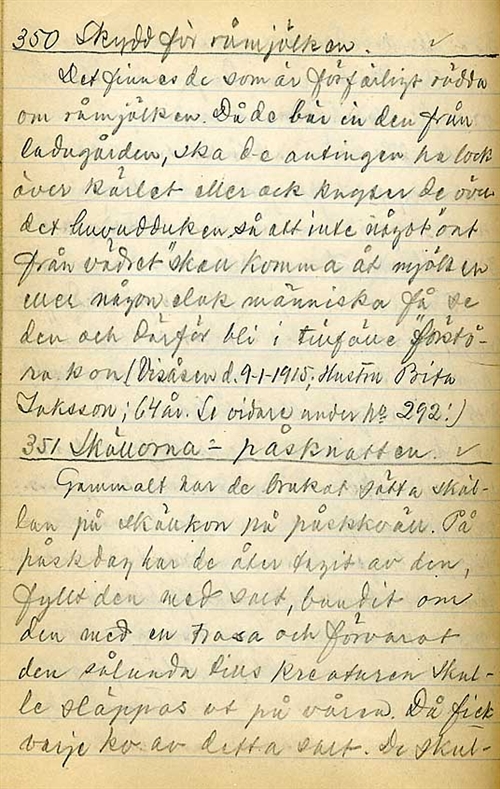 350 Skydd för råmjölken. ✓
Det finnes de som är förfärligt rädda
om råmjölken. Då de bär in den från
ladugården, ska de antingen ha lock
över kärlet eller ock knyter de över
det huvudduken, så att inte något "ont
från vädret" skall komma åt mjölken
eller någon elak människa få se
den och därför bli i tillfälle "förstö-
ra kon (Visåsen d. 9-1-1915; Hustru Brita
Isaksson; 64 år. Se vidare under no 292!)
351 Skällorna = påsknatten. ✓
Gammalt har de brukat sätta skäl-
lan på skällkon på påskkväll. På
påskdag har de åter tagit av den,
fyllt den med salt, bundit om
den med en trasa och förvarat
den sålunda tills kreaturen skul-
le släppas ut på våren. Då fick
varje ko av detta salt. De skul-